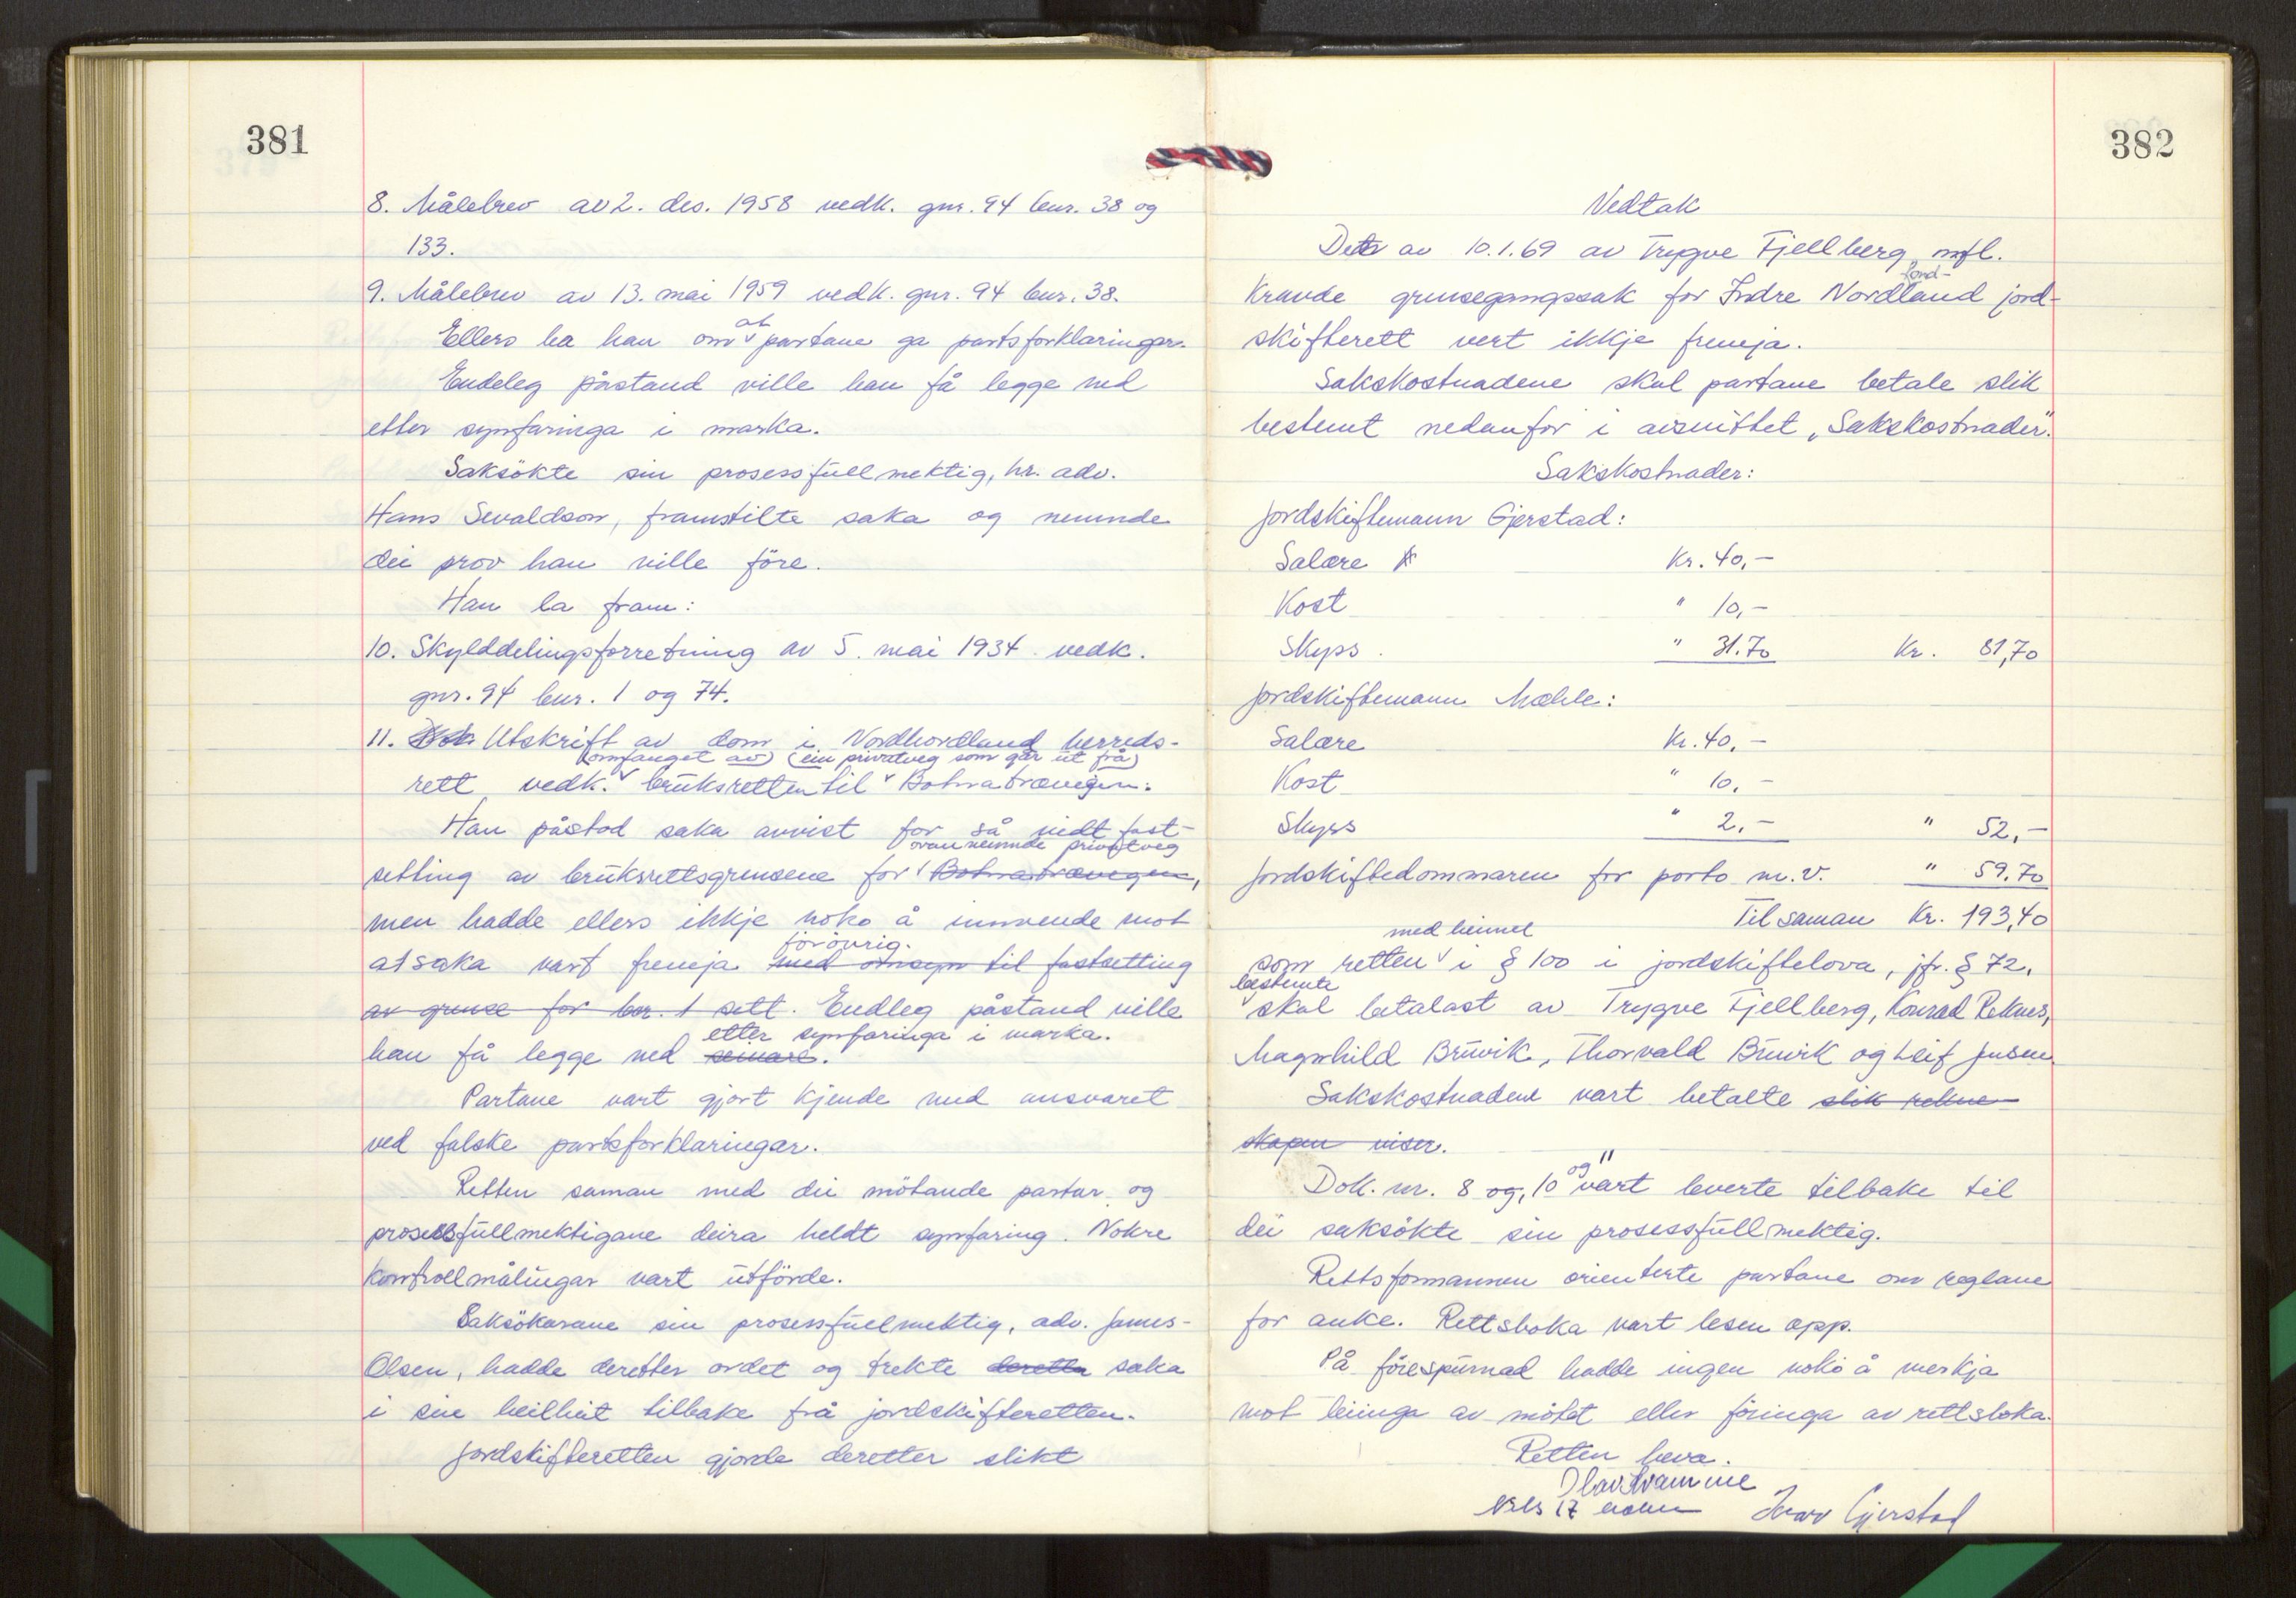 381
8. Målebrev av 2. des. 1958 vedk. gnr. 94 bnr. 38 og
133.
9. Målebrev av 13. mai 1959 vedk. gnr. 94 bnr. 38.
Ellers ba han om at partane ga partsforklaringar.
Endeleg påstand ville han få legge ned
etter synfaringa i marka.
Saksökte sin prosessfullmektig, hr. adv.
Hans Sevaldson, framstilte saka og nemnde
dei prov han ville före.
Han la fram:
10. Skylddelingsforretning av 5. mai 1934 vedk.
gnr. 94 bnr. 1 og 74.
11. Utskrift av dom i Nordhordland herreds-
(omfanget av) (ein privatveg som går ut frå)
rett vedk. bruksretten til Botnatrævegen.
Han påstod saka avvist for så vidt fast-
ovannemnde privatveg
setting av bruksrettsgrensene for Botnatrævegen,
men hadde ellers ikkje noko å innvende mot
forövrig.
at saka vart fremja med omsyn til fastsetting
av grense for bnr. 1 sett. Endleg påstand ville
etter synfaringa i marka.
han få legge ned seinare.
Partane vart gjort kjende med ansvaret
ved falske partsforklaringar.
Retten saman med dei mötande partar og
prosessfullmektigane deira heldt synfaring. Nokre
kontrollmålingar vart utförde.
Saksökarane sin prosessfullmektig, adv. James-
Olsen, hadde deretter ordet og trekte deretter saka
i sin heilheit tilbake frå jordskifteretten.
Jordskifteretten gjorde deretter slikt
382
Vedtak
Den av 10.1.69 av Trygve Fjellberg mfl.
hord-
kravde grensegangssak for Indre Nordland jord-
skifterett vert ikkje fremja.
Sakskostnadene skal partane betale slik
bestemt nedanfor i avsnittet „Sakskostnader".
Sakskostnader:
Jordskiftemann Gjerstad:
Salære Kr. 40,-
Kost " 10,-
Skyss " 31.70 Kr. 81,70
Jordskiftemann Mæhle:
Salære Kr. 40,-
Kost " 10,-
Skyss " 2,- " 52,-
Jordskiftedommaren for porto m.v. " 59.70
Tilsaman Kr. 193,40
med heimel
som retten i § 100 i jordskiftelova, jfr. § 72,
bestemte
skal betalast av Trygve Fjellberg, Konrad Reknes,
Magnhild Bruvik, Thorvald Bruvik og Leif Jensen.
Sakskostnadene vart betalte slik rekne-
skapen viser.
og 11
Dok. nr. 8 og, 10 vart leverte tilbake til
dei saksökte sin prosessfullmektig.
Rettsformannen orienterte partane om reglane
for anke. Rettsboka vart lesen opp.
På förespurnad hadde ingen noko å merkja
mot leiinga av mötet eller föringa av rettsboka.
Retten heva.
Olav Kvamme
Nils Mæhle Ivar Gjerstad